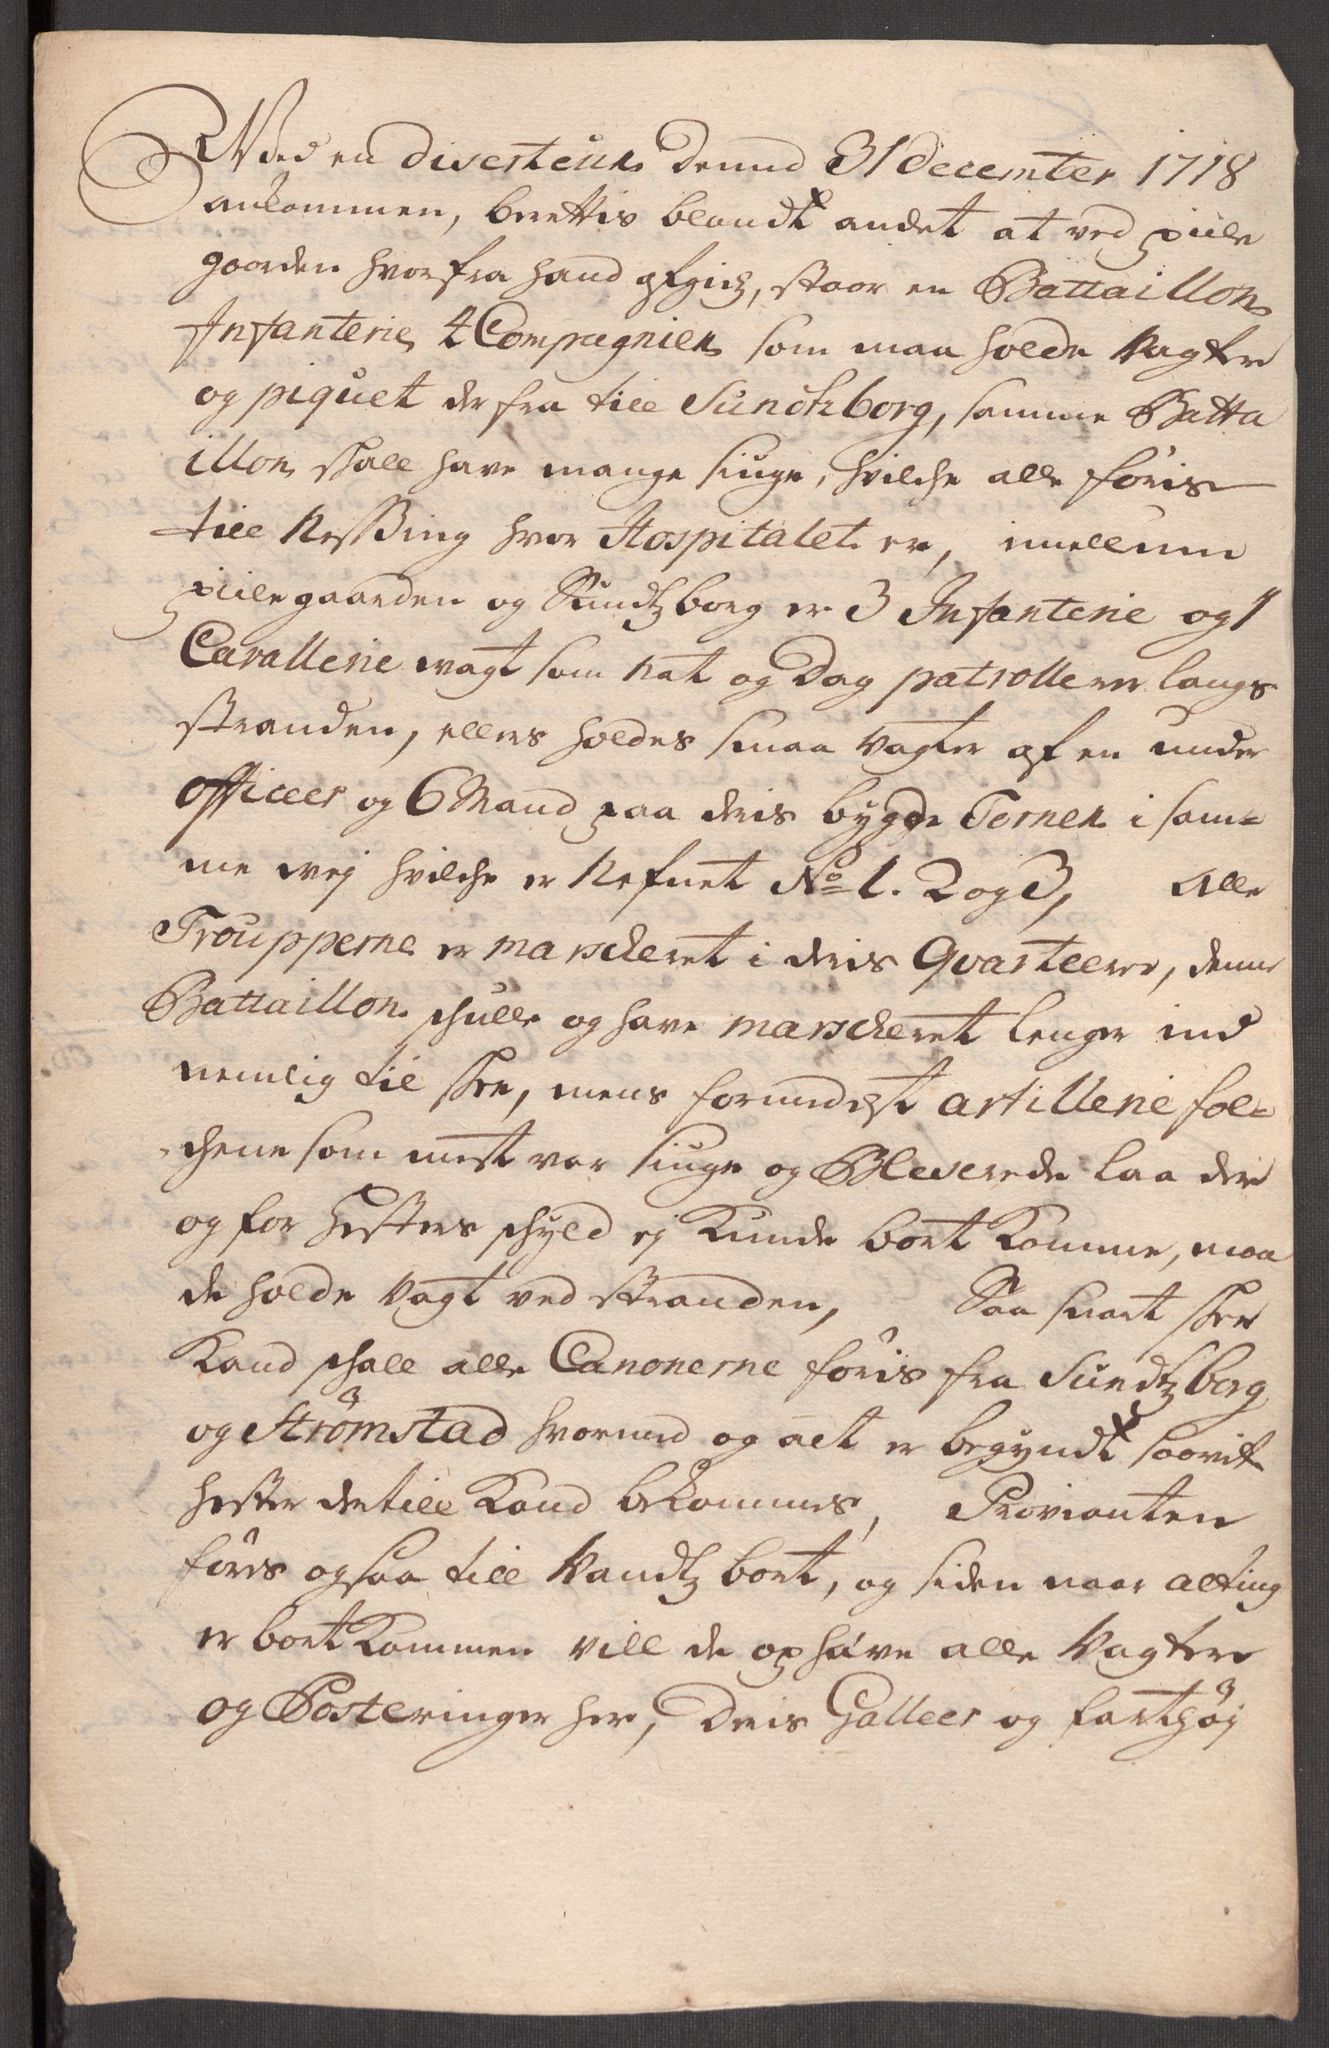 Ved en diverteur denud 31 december 1718
ankommen, berettis blandt andet at ved piile
gaarden hvorfra hand afgich, staar en Battaillon
Infanterie 4 Compagnier som maa holde vagter
og piquet derfra till Sundtzborg, samme Batta
illon skall have mange siuge, hvilche alle föris
till Ressing hvor Hospitalet er, imellum
piilegaarden og Sundtzborg er 3 Infanterie og 1
Cavallerie wagt som Nat og Dag patrollerer langs
stranden, ellers holdes smaa vagter af en under
officeer og 6 Mand paa deris bygde Terner i sam=
me vej hvilche er Nefnet No 1. 2 og 3, Alle
Troupperne er marscheret i deris Qvarteerer, denne
Battaillon schulle og have marscheret lenger ind
nemlig til
 mens formedelst artillerie fol=
chene som mest var siuge og Blesserede laa der
og for Hesters schyld ej Kunde bort Komme, maa
de holde Vagt ved stranden, Saa snart skee
Kand schall alle Canonerne föris fra Sundtzborg
og Strömstad hvormed og alt er begyndt saavit
hester der till Kand bekommes, Provianten
förs ogsaa till Vandtz bort, og siden naar alting
er bort Kommen vill de ophäve alle Vagter
og Posteringer her, Deris Galleer og fartþöj